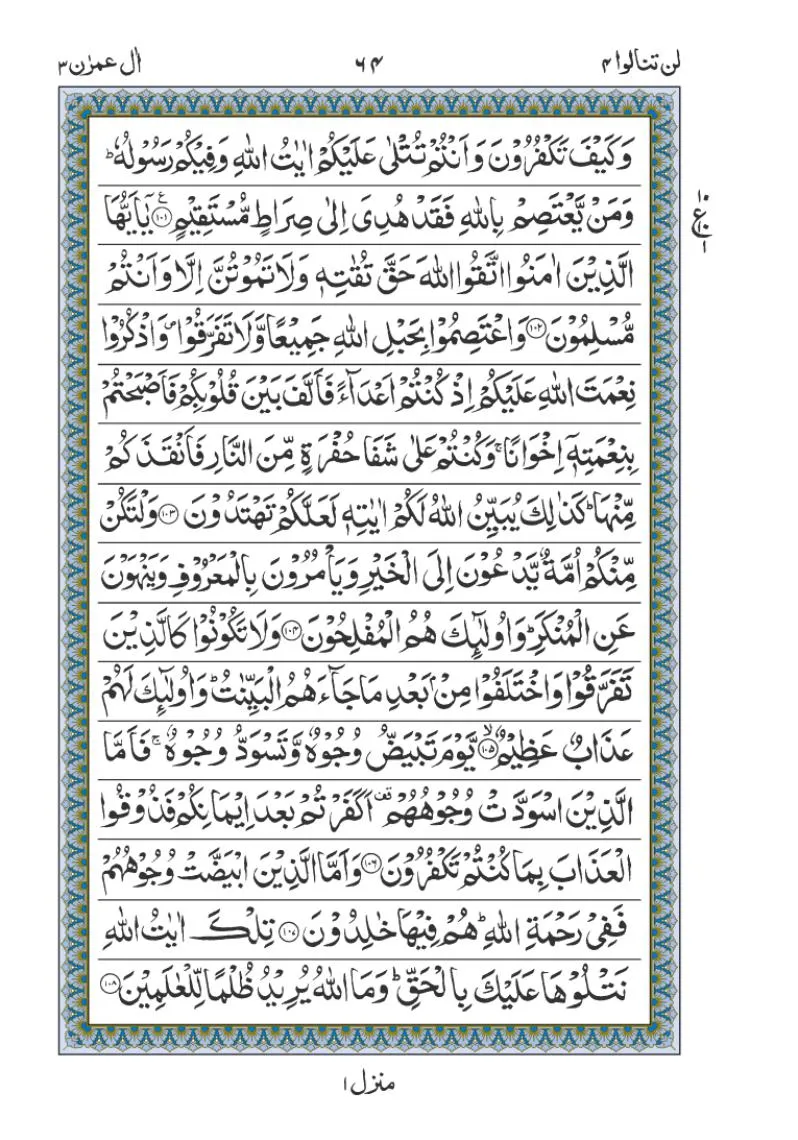 لن تنالوا ۴ ۶۴ اٰل عمرٰن ۳
وَ كَیْفَ تَكْفُرُوْنَ وَ اَنْتُمْ تُتْلٰى عَلَیْكُمْ اٰیٰتُ اللّٰهِ وَ فِیْكُمْ رَسُوْلُهٗ ؕ
وَ مَنْ یَّعْتَصِمْ بِاللّٰهِ فَقَدْ هُدِیَ اِلٰى صِرَاطٍ مُّسْتَقِیْمٍ ۧ﴿۱۰۱﴾ یٰۤاَیُّهَا
۱۰ ع ۱۰ ۱
الَّذِیْنَ اٰمَنُوا اتَّقُوا اللّٰهَ حَقَّ تُقٰتِهٖ وَ لَا تَمُوْتُنَّ اِلَّا وَ اَنْتُمْ
مُّسْلِمُوْنَ ﴿۱۰۲﴾ وَ اعْتَصِمُوْا بِحَبْلِ اللّٰهِ جَمِیْعًا وَّ لَا تَفَرَّقُوْا ۪ وَ اذْكُرُوْا
نِعْمَتَ اللّٰهِ عَلَیْكُمْ اِذْ كُنْتُمْ اَعْدَآءً فَاَلَّفَ بَیْنَ قُلُوْبِكُمْ فَاَصْبَحْتُمْ
بِنِعْمَتِهٖۤ اِخْوَانًا ۚ وَ كُنْتُمْ عَلٰى شَفَا حُفْرَةٍ مِّنَ النَّارِ فَاَنْقَذَكُمْ
مِّنْهَا ؕ كَذٰلِكَ یُبَیِّنُ اللّٰهُ لَكُمْ اٰیٰتِهٖ لَعَلَّكُمْ تَهْتَدُوْنَ ﴿۱۰۳﴾ وَ لْتَكُنْ
مِّنْكُمْ اُمَّةٌ یَّدْعُوْنَ اِلَى الْخَیْرِ وَ یَاْمُرُوْنَ بِالْمَعْرُوْفِ وَ یَنْهَوْنَ
عَنِ الْمُنْكَرِ ؕ وَ اُولٰٓىِٕكَ هُمُ الْمُفْلِحُوْنَ ﴿۱۰۴﴾ وَ لَا تَكُوْنُوْا كَالَّذِیْنَ
تَفَرَّقُوْا وَ اخْتَلَفُوْا مِنْۢ بَعْدِ مَا جَآءَهُمُ الْبَیِّنٰتُ ؕ وَ اُولٰٓىِٕكَ لَهُمْ
عَذَابٌ عَظِیْمٌ ۙ﴿۱۰۵﴾ یَّوْمَ تَبْیَضُّ وُجُوْهٌ وَّ تَسْوَدُّ وُجُوْهٌ ۚ فَاَمَّا
الَّذِیْنَ اسْوَدَّتْ وُجُوْهُهُمْ ۫ اَكَفَرْتُمْ بَعْدَ اِیْمَانِكُمْ فَذُوْقُوا
الْعَذَابَ بِمَا كُنْتُمْ تَكْفُرُوْنَ ﴿۱۰۶﴾ وَ اَمَّا الَّذِیْنَ ابْیَضَّتْ وُجُوْهُهُمْ
فَفِیْ رَحْمَةِ اللّٰهِ ؕ هُمْ فِیْهَا خٰلِدُوْنَ ﴿۱۰۷﴾ تِلْكَ اٰیٰتُ اللّٰهِ
نَتْلُوْهَا عَلَیْكَ بِالْحَقِّ ؕ وَ مَا اللّٰهُ یُرِیْدُ ظُلْمًا لِّلْعٰلَمِیْنَ ﴿۱۰۸﴾
منزل ۱